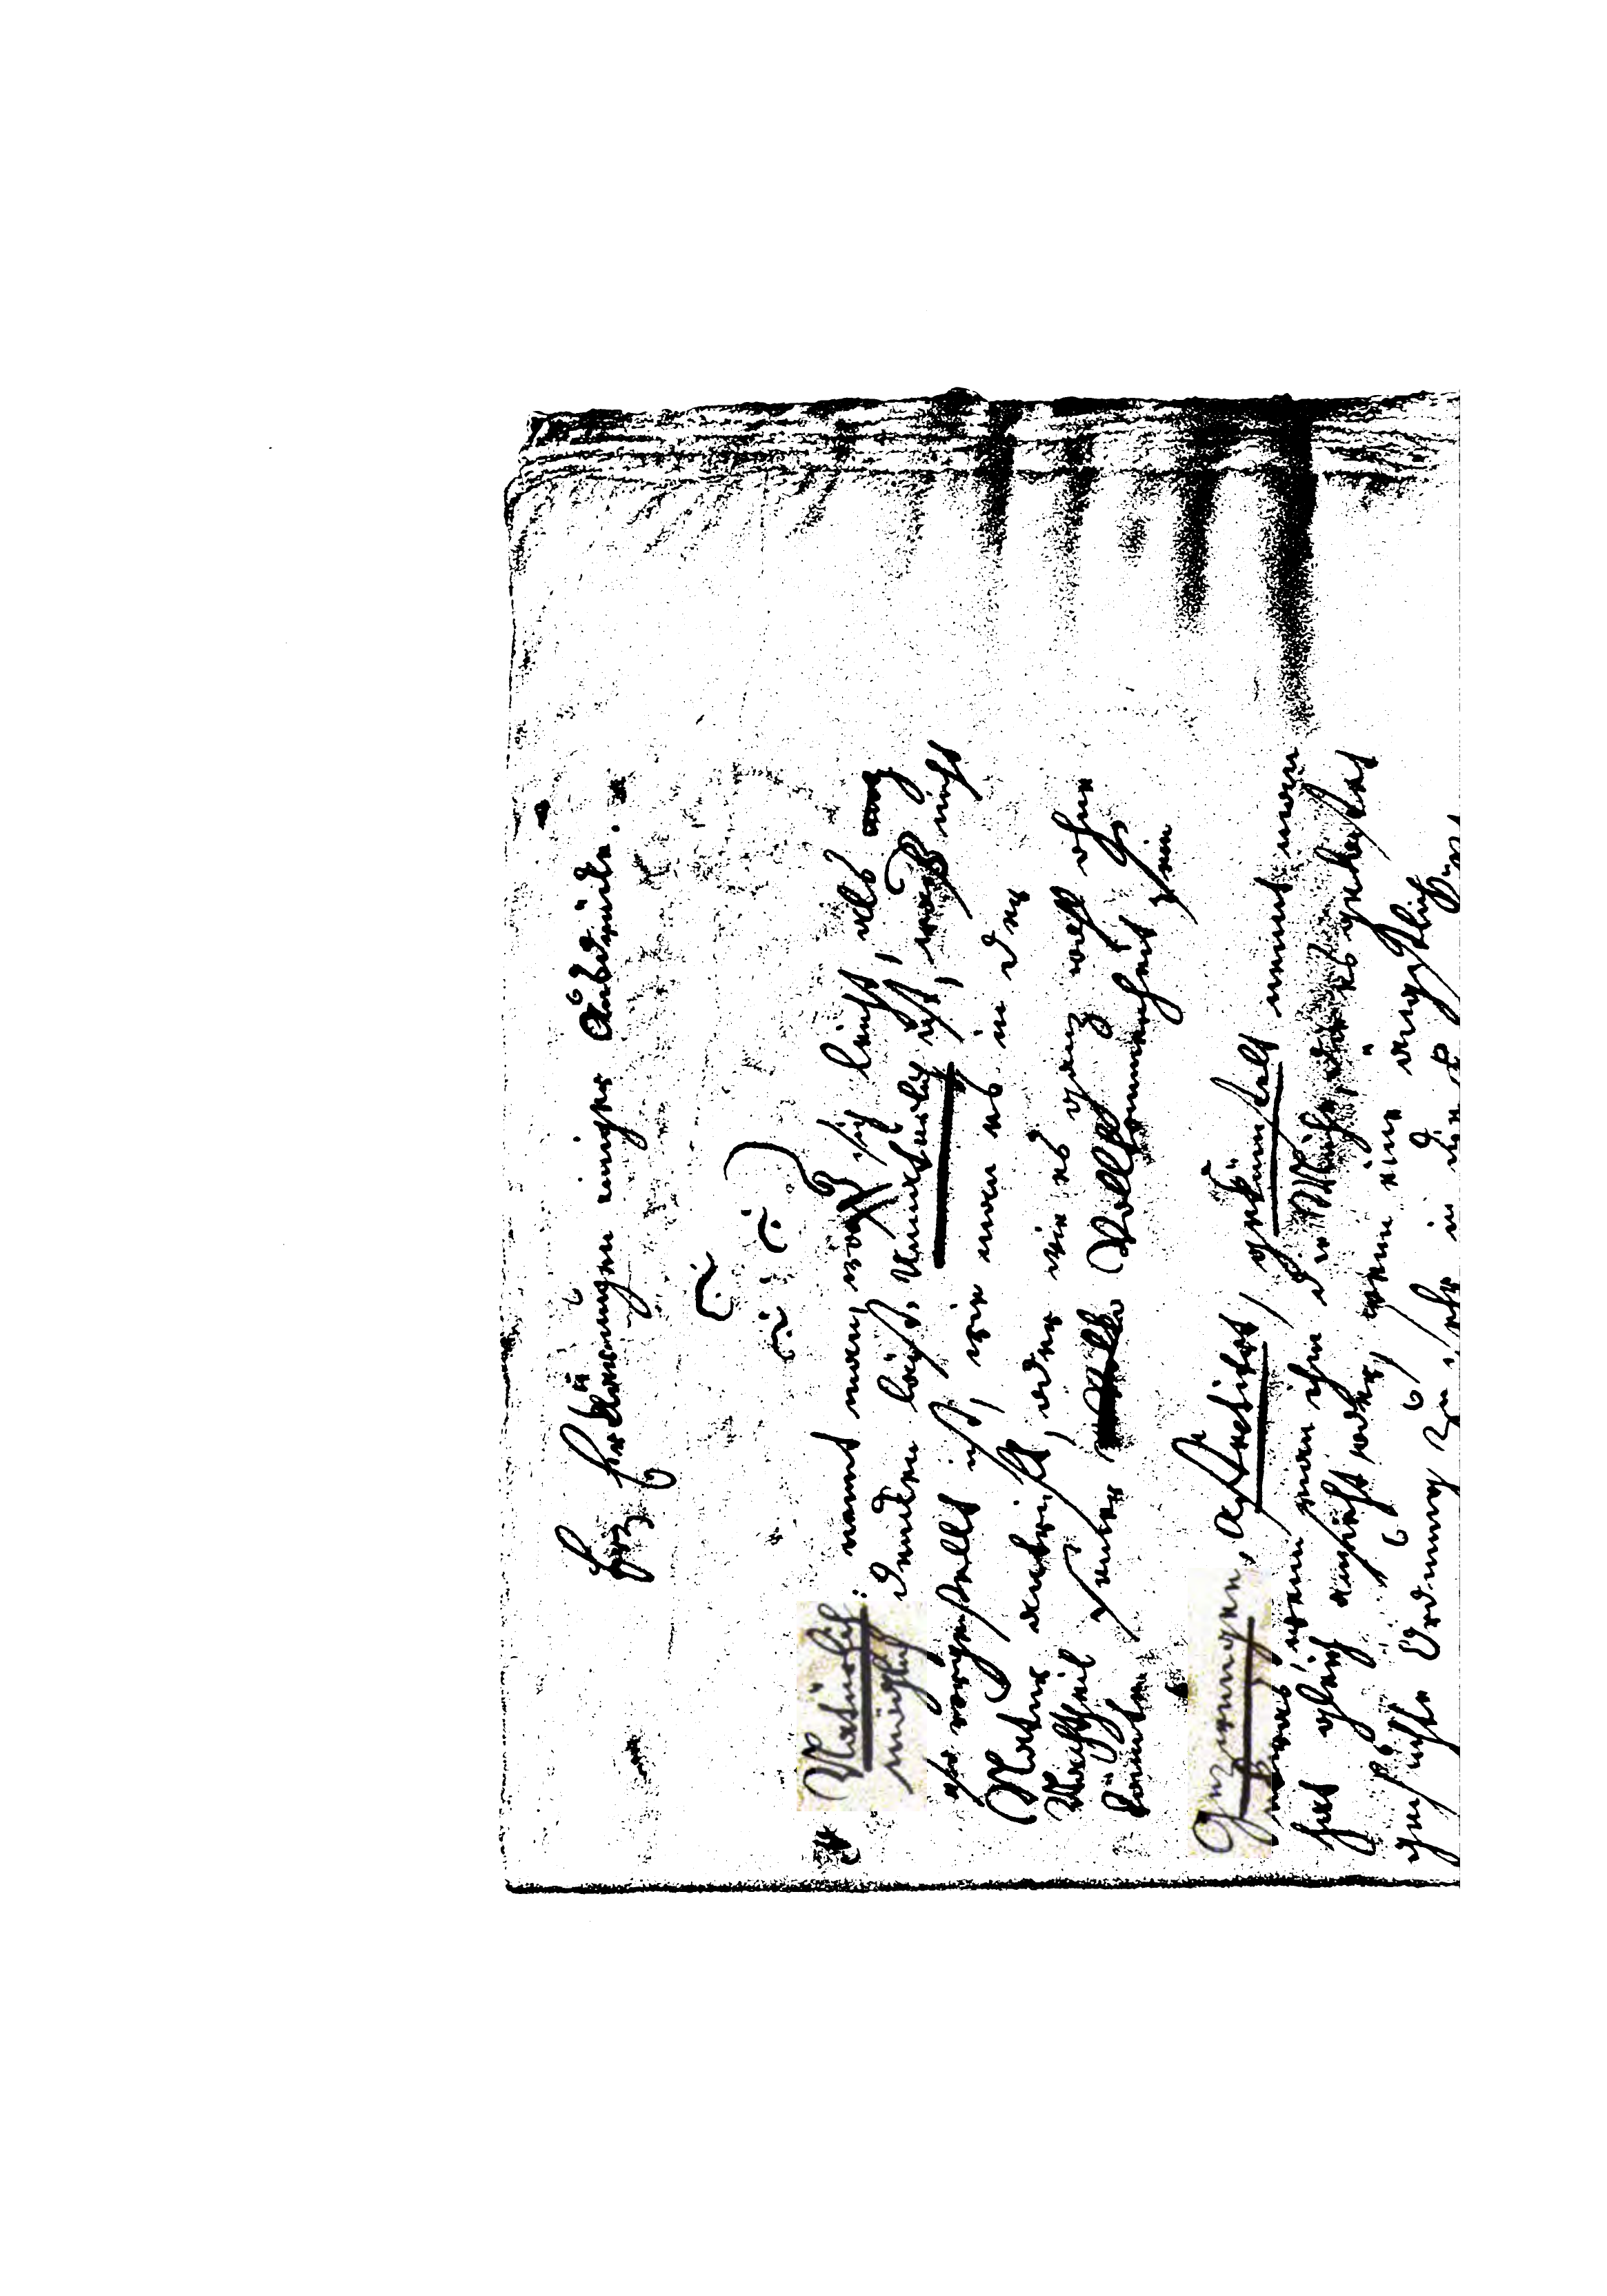 Erklärungen einiger Ausdrücke.
Natürlich: nennt man, was sich leicht, als
möglich denken läßt. Unnatürlich ist, was nicht
so vorgestellt ist, wie man es in der
Natur antrifft, oder wie es ganz wohl ohne
Nachtheil seiner Vollkommenheit sein
könnte.
Gezwungen, affectirt, gekünstelt nennt man
etwas, wenn man ihm die Mühe, die es gekostet
hat gleich ansieht oder, wenn eine ängstlich
gesuchte Ordnung zu sehr in die